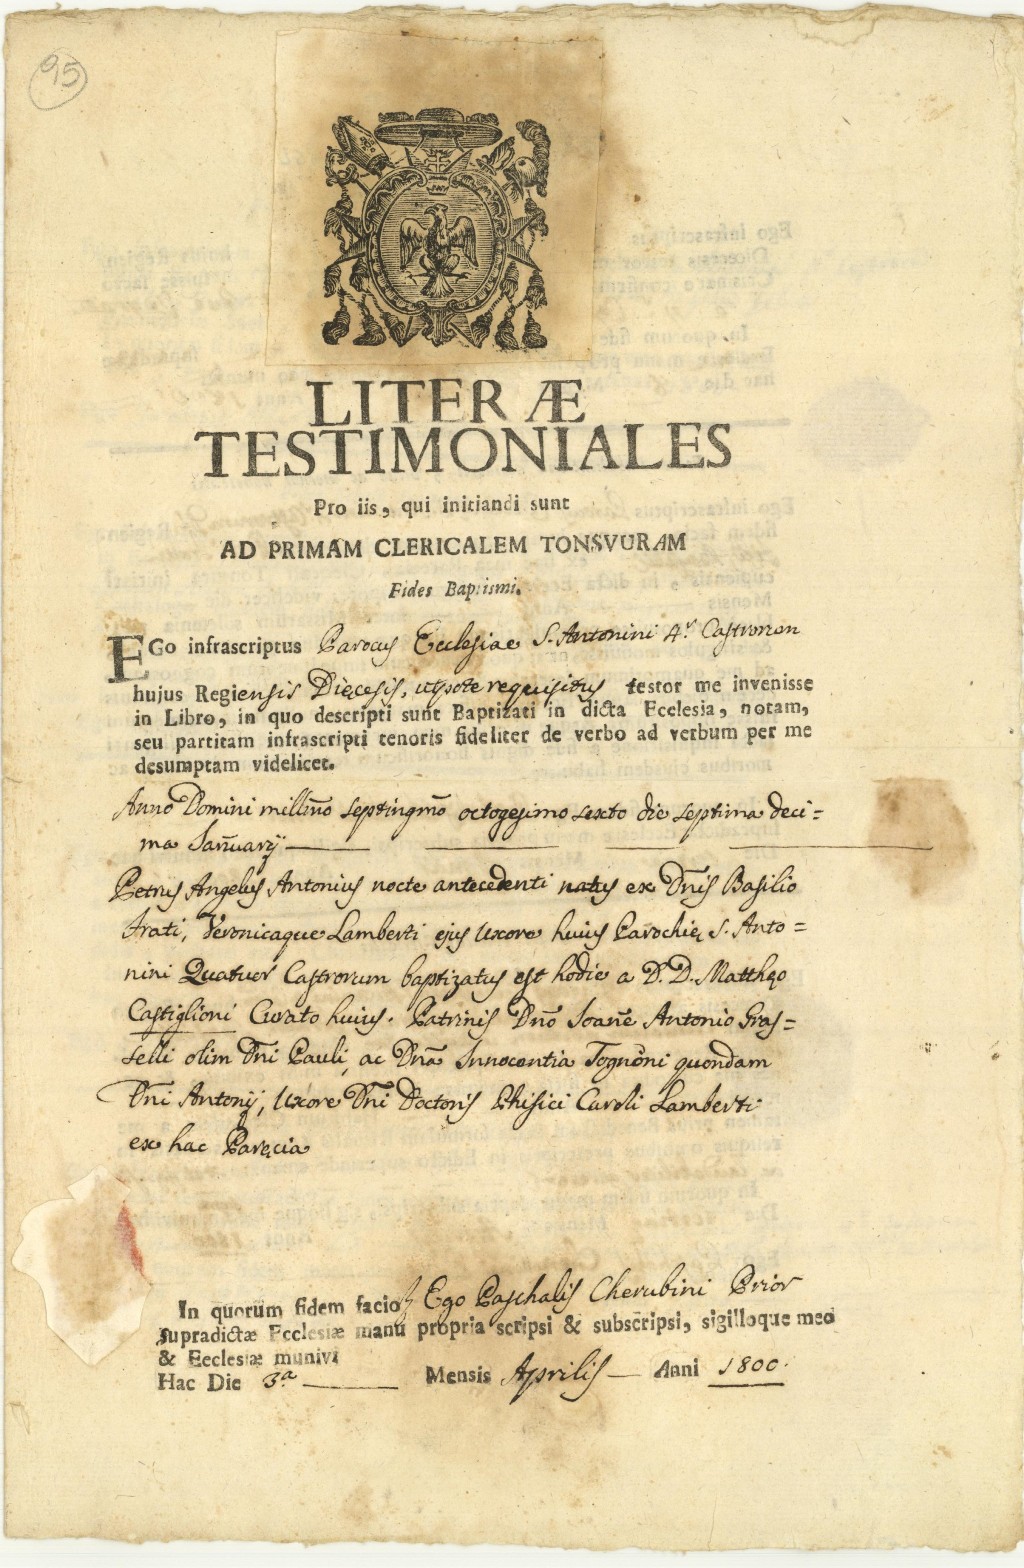 95
LITERÆ
TESTIMONIALES
Pro iis, qui initiandi sunt
AD PRIMAM CLERICALEM TONSVURAM
Fides Baptismi.
EGo infrascriptus Parocus Ecclesiae S. Antonini 4.r Castroron
hujus Regiensis Dięcesis, utpote requisitus testor me invenisse
in Libro, in quo descripti sunt Baptizati in dicta Ecclesia, notam,
seu partitam infrascripti tenoris fideliter de verbo ad verbum per me
desumptam videlicet.
Anno Domini millm̄o septingm̄o octogesimo sexto die septima deci=
ma Januarij
Petrus Angelus Antonius nocte antecedenti natus ex Dnis Basilio
Prati, Veronicaque Lamberti ejus Uxore huius Parochię S. Anto=
nini Quatuor Castrorum baptizatus est hodie a D. D. Matthęo
Castiglioni Curato huius. Patrinis Dn̄o Joan̄e Antonio Gras=
selli olim Dn̄i Pauli, ac Dn̄a Innocentia Tognōni quondam
Dn̄i Antonij, Uxore Dn̄i Doctoris Phisici Caroli Lamberti
ex hac Paręcia
In quorum fidem facio Ego Paschalis Cherubini Prior
supradictæ Ecclesiæ manu propria scripsi & subscripsi, sigilloque meo
& Ecclesiæ munivi
Hac Die 3.a Mensis Aprilis Anni 1800.